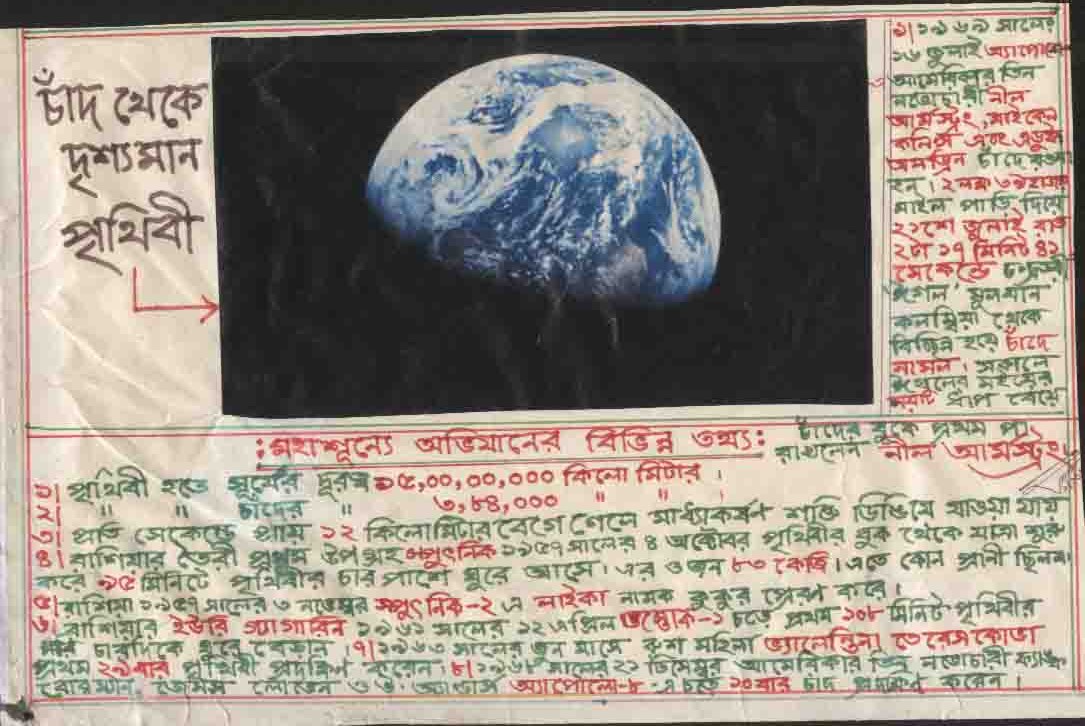 চাঁদ থেকে
দৃশ্যমান
পৃথিবী
৯| ১৯৬৯ সালের
১৬ জুলাই অ্যাপোলো-
আমেরিকার তিন
নভোচারী নীল
আর্মস্ট্রং, মাইকেল
কলিন্স এবং এডুইন
অলড্রিন চাঁদে রওনা
হন। ২ লক্ষ
মাইল পাড়ি দিয়ে
২১শে জুলাই রাত
২টা ১৭ মিনিট ৪২
সেকেন্ডে চন্দ্রতরী
'ঈগল' মূলযান
কলম্বিয়া থেকে
বিচ্ছিন্ন হয়ে চাঁদে
নামল। সকালে
ঈগলের মইয়ের
নয়টি ধাপ বেয়ে
চাঁদের বুকে প্রথম পা
রাখলেন নীল আর্মস্ট্রং।
:মহাশূন্যে অভিযানের বিভিন্ন তথ্য:
১| পৃথিবী হতে সূর্যের দূরত্ব ১৫,০০,০০,০০০ কিলো মিটার।
২| " " চাঁদের " ৩,৮৪,০০০ " " ।
৩| প্রতি সেকেন্ডে প্রায় ১২ কিলোমিটার বেগে গেলে মাধ্যাকর্ষণ শক্তি ডিঙিয়ে যাওয়া যায়
৪| রাশিয়ার তৈরী প্রথম উপগ্রহ স্পুৎনিক ১৯৫৭ সালের ৪ অক্টোবর পৃথিবীর বুক থেকে যাত্রা শুরু
করে ৯৫ মিনিটে পৃথিবীর চার পাশে ঘুরে আসে। এর ওজন ৮৩ কেজি। এতে কোন প্রানী ছিলনা
৫| রাশিয়া ১৯৫৭ সালের ৩ নভেম্বর স্পুৎনিক-২ এ লাইকা নামক কুকুর প্রেরণ করে।
৬| রাশিয়ার ইউরি গ্যাগারিন ১৯৬১ সালের ১২ এপ্রিল ভস্তোক-১ চড়ে প্রথম ১০৮ মিনিট পৃথিবীর
চারদিকে ঘুরে বেড়ান। ৭| ১৯৬৩ সালের জুন মাসে রুশ মহিলা ভ্যালেন্তিনা তেরেসকোভা
প্রথম ২৯বার পৃথিবী প্রদক্ষিণ করেন। ৮| ১৯৬৮ সালের ২১ ডিসেম্বর আমেরিকার তিন নভোচারী ফ্রাঙ্ক
বোরম্যান, জেমস লোভেল ও উ. অ্যান্ডার্স অ্যাপোলো-৮-এ চড়ে ১০বার চাঁদ প্রদক্ষিণ করেন।